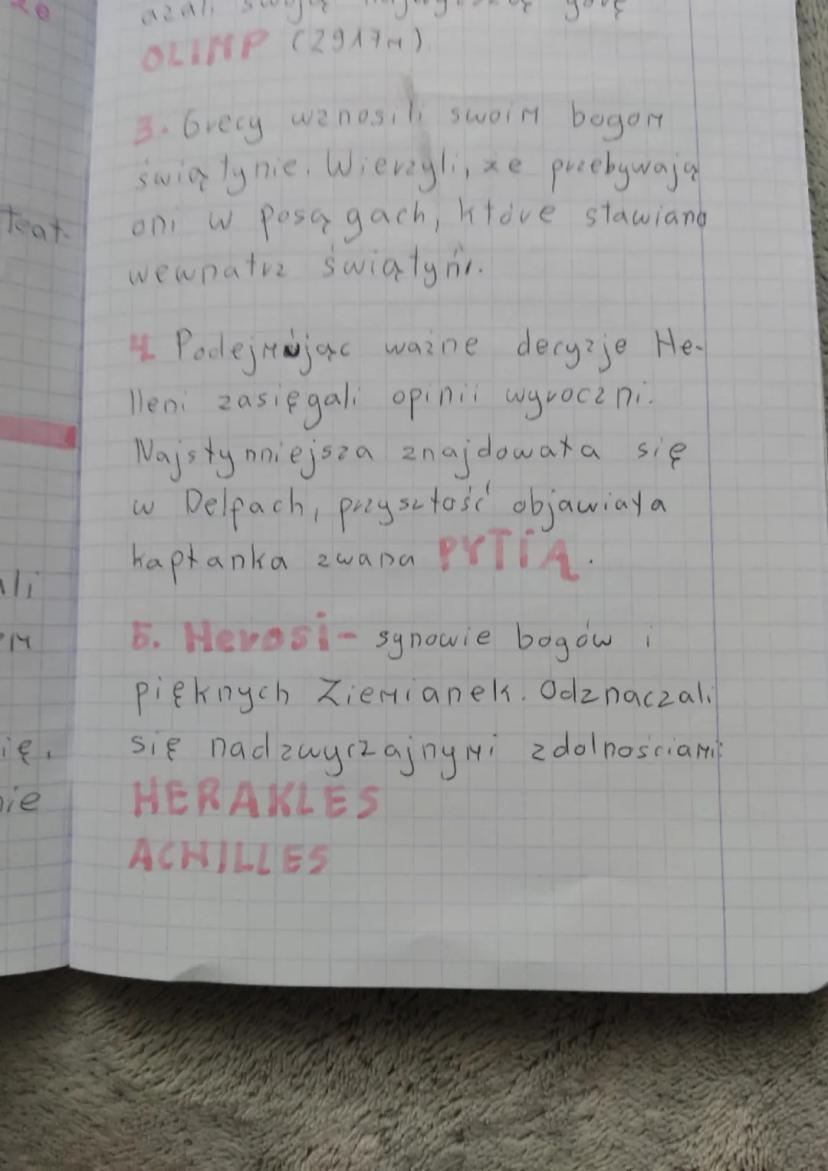 OLIMP (2917m)
3. Grecy wznosili swoim bogom
świątynie. Wierzyli, że przebywają
oni w posągach, które stawiano
wewnatrz świątyni.
4. Podejmując ważne decyzje He-
lleni zasięgali opinii wyroczni.
Najsłynniejsza znajdowała się
w Delfach, przyszłość objawiała
kapłanka zwana PYTIĄ.
5. Herosi- synowie bogów i
pięknych Ziemianek. Odznaczali
się nadzwyczajnymi zdolnościami:
HERAKLES
ACHILLES
teat-
ali
em
ię.
nie